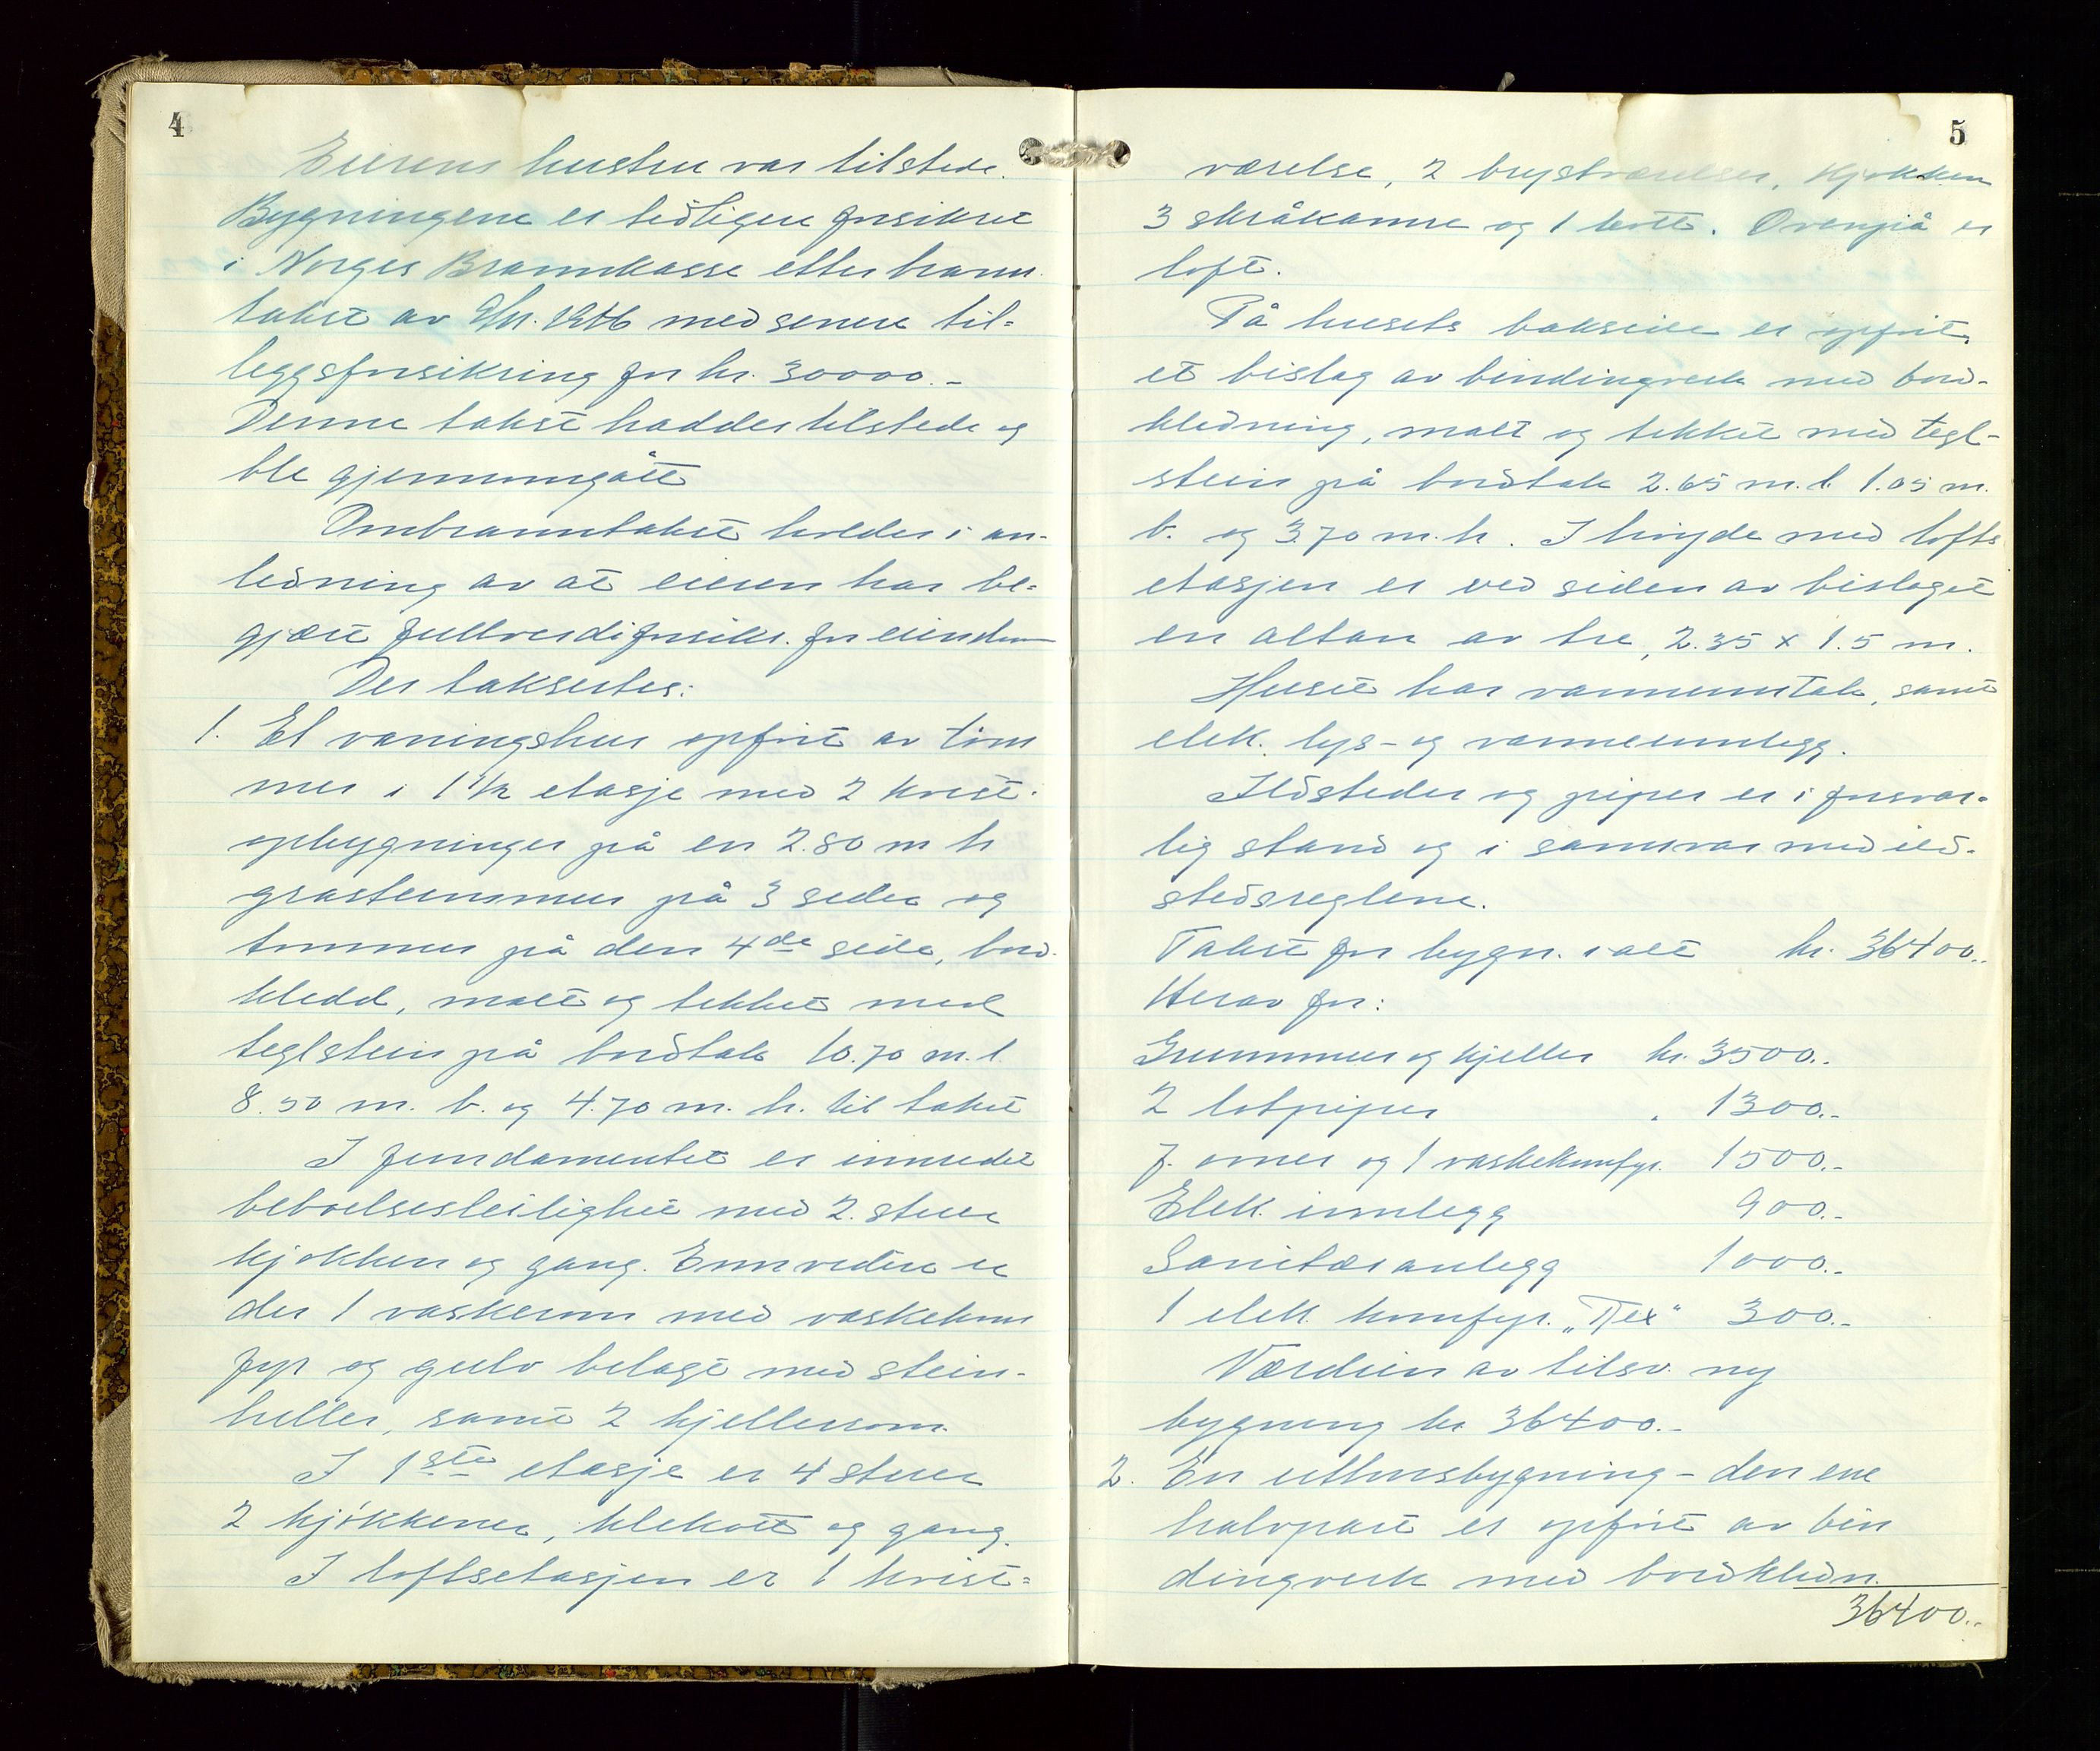 4
Eierens hustru var tilstede.
Bygningene er tidligere forsikret
i Norges Brannkasse etter brann
takst av med senere til-
leggsforsikring for kr. 30000.-
Denne takst haddes tilstede og
ble gjennomgått
Ombranntakst holdes i an-
ledning av at eieren har be-
gjært fullverdiforsikr. for eiendom
Der taksertes:
1. Et våningshus opført av tøm
mer i 1 1/2 etasje med 2 kvist-
opbygninger på en 2.80 m h
gråsteinsmur på 3 sider og
tømmer på den 4de side, bord
kledd, malt og tekket med
teglstein på bordtak 10.70 m. l.
8.50 m. b. og 4.70 m. h. til taket
I fundamentet er innredet
beboelsesleilighet med 2 stuer
kjøkken og gang. Ennvidere er
der 1 vaskerom med vaskekom
fyr og gulv belagt med stein-
heller, samt 2 kjellerrom.
I 1ste etasje er 4 stuer
2 kjøkkener, klekott og gang.
I loftsetasjen er 1 kvist-
5
værelse, 2 brystværelser, kjøkken
3 skråkamre og 1 kott. Ovenpå er
loft.
På husets bakside er opført
et bislag av bindingverk med bord-
kledning, malt og tekket med tegl-
stein på bordtak 2.65 m. l. 1.05 m.
b. og 3.70 m. h. I høyde med lofts
etasjen er ved siden av bislaget
en altan av tre, 2.35 x 1.5 m.
Huset har vanninntak, samt
elek. lys- og varmeinnlegg.
Ildsteder og piper er i forsvar-
lig stand og i samsvar med ild-
stedsreglene.
Takst for bygn. i alt kr. 36400.-
Herav for:
Grunnmur og kjeller kr. 3500.-
2 løtpiper " 1300.-
7 ovner og 1 vaskekomfyr. 1500.-
Elek. innlegg 900.-
Sanitæranlegg 1000.-
1 elek. komfyr. „Rex" 300.-
Værdien av tilsv. ny
bygning kr 36400.-
2. En uthusbygning - den ene
halvpart er opført av bin
dingverk med bordkledn.
36400.-